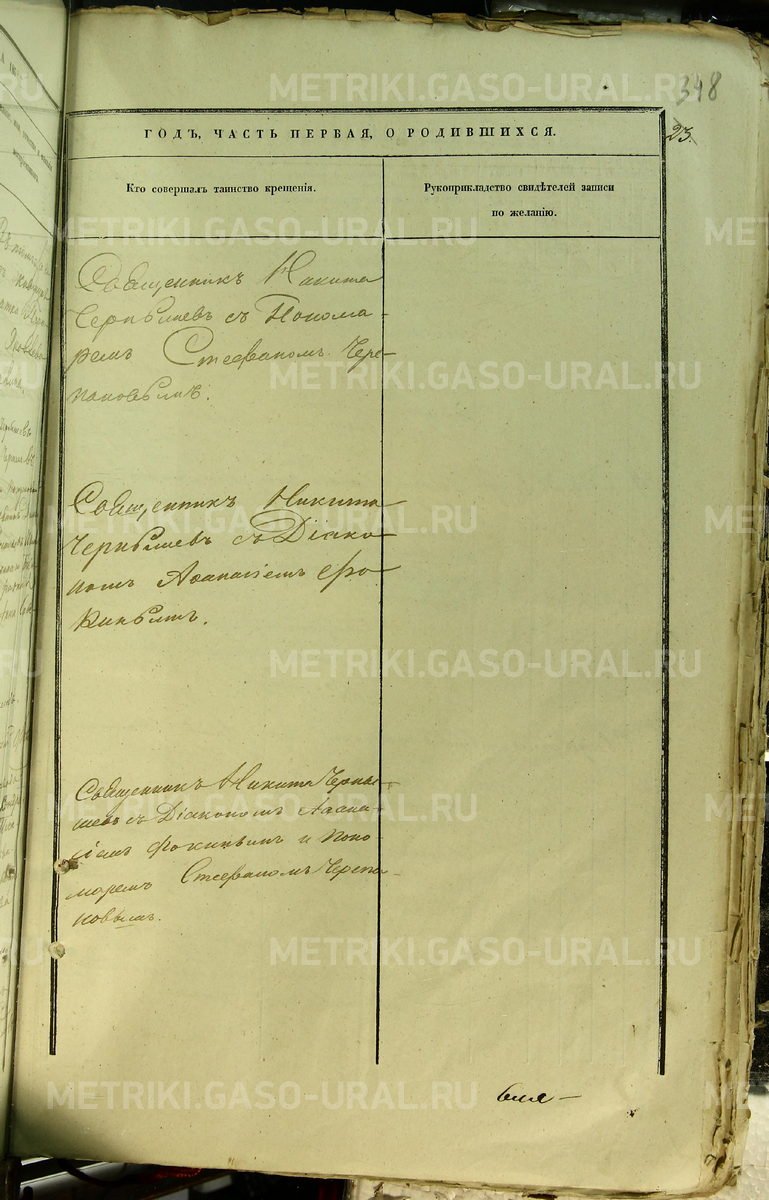 348
ГОДЪ, ЧАСТЬ ПЕРВАЯ, О РОДИВШИХСЯ.
23.
Кто совершалъ таинство крещенія.
Рукоприкладство свидѣтелей записи
по желанію.
Священникъ Никита
Чернышевъ съ Понома-
ремъ Стефаномъ Чере-
пановымъ.
Священникъ Никита
Чернышевъ съ Діако-
номъ Аѳанасіемъ Фо-
кинымъ.
Священникъ Никита Черны-
шевъ съ Діакономъ Аѳана-
сіемъ Фокинымъ и Поно-
маремъ Стефаномъ Черепа-
новымъ.
METRIKI.GASO-URAL.RU